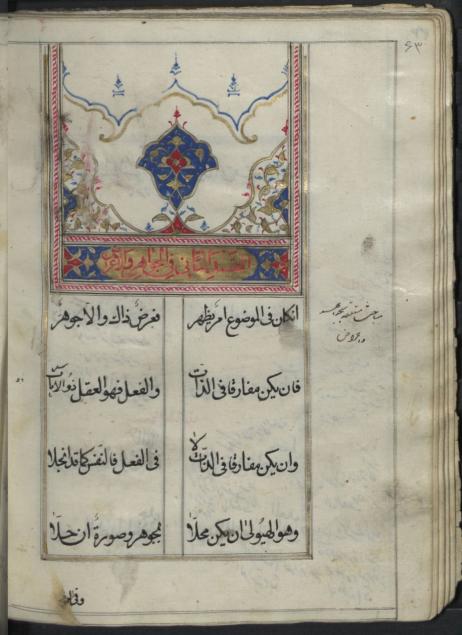 ۶۳
المقصد الثانی فی الجواهر والاعراض
ان کان فی الموضوع امر یظهر فعرض ذاک والا جوهر
فان یکن مفارقا فی الذات والفعل فهو العقل
وان یکن مفارقا فی الذات لا فی الفعل فالنفس کما قد انجلا
وهو الهیولی ان یکن محلا لجوهر وصورة ان حلا